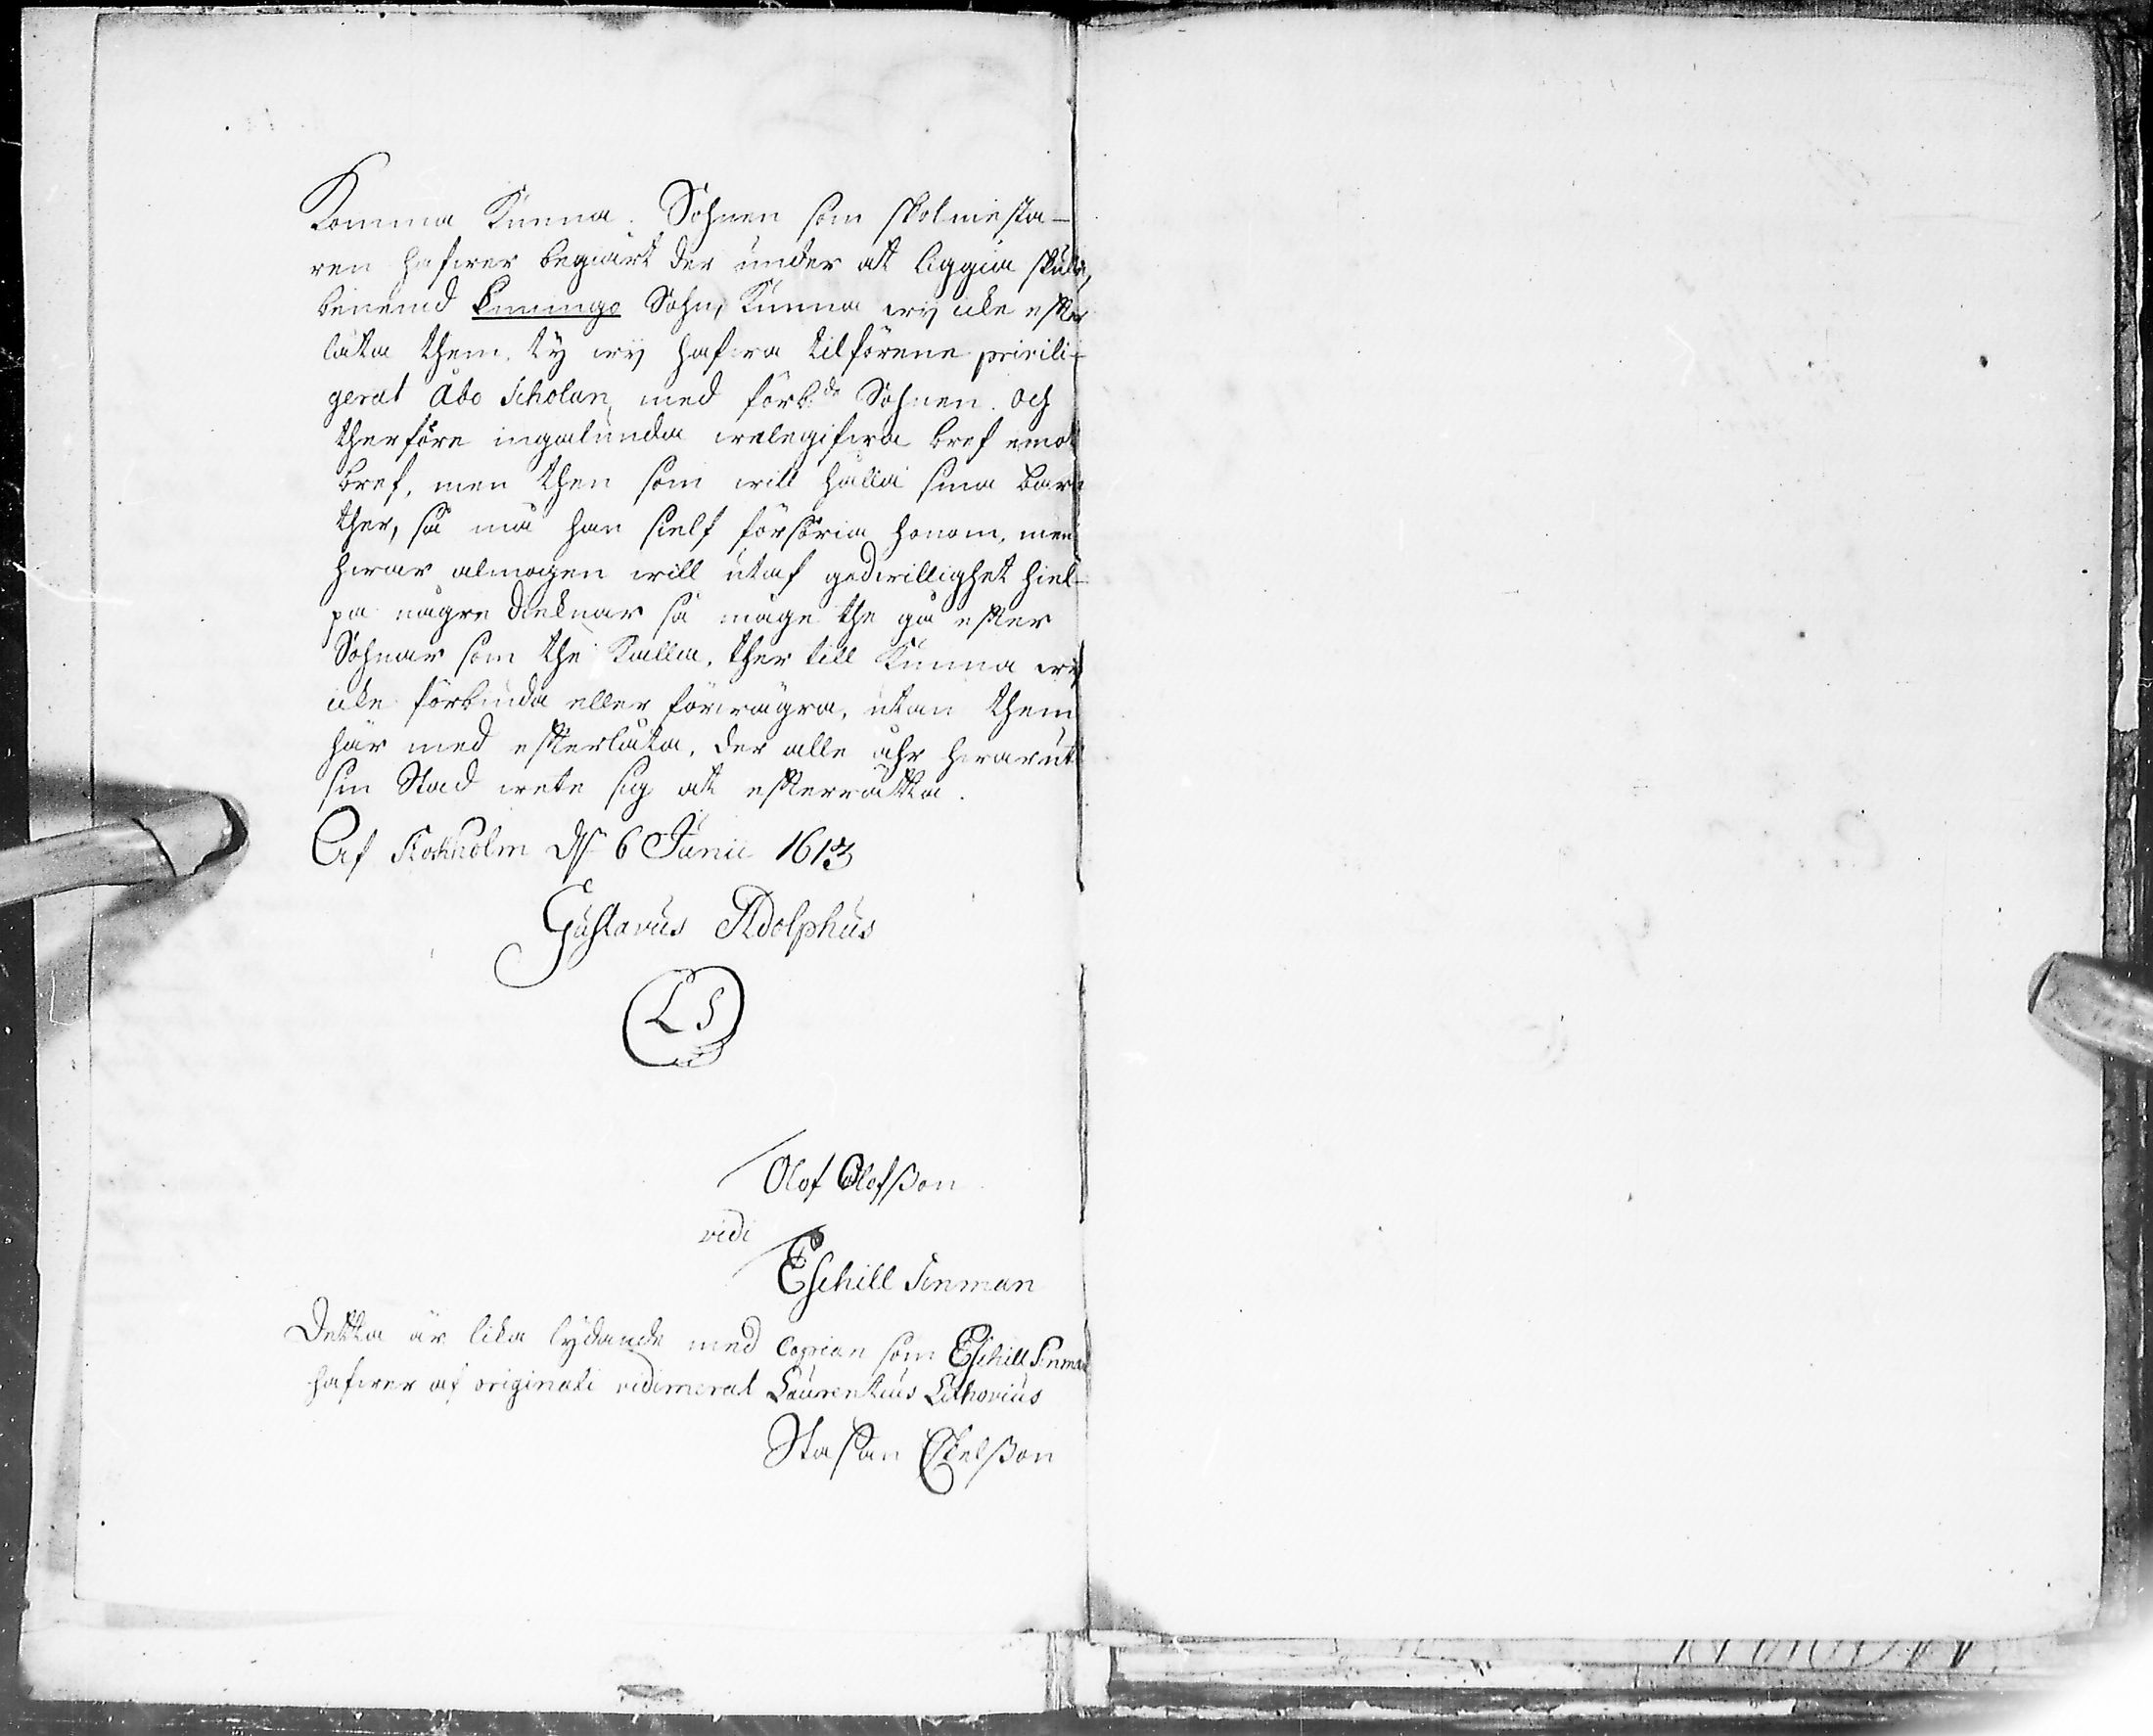 Komma kunna. Sochnen som skolmesta-
ren hafwer begiärt der under at liggia skulle,
benemd Kumingo Sochn, kunna wij icke effter
låta them. ty wij hafwa tilförene privili-
gerat Åbo Scholan, med förb:de Sochnen. och
therföre ingalunda welegifwa bref emot
bref, men then som will hålla sina barn
ther, så må han sielf försöria honom, men
hwar almogen will utaf godwillighet hiel-
pa någre dieknar så måge the gå effter
Sochnar som the kalla, ther till kunna wij
icke förbinda eller förwägra, utan them
här med effterlåta, der alle åhr hwar uti
sin Stad wete sig at effterrätta.
Af Stockholm d. 6 Junii 1613
Gustavus Adolphus
L S
Olof Olofsson
vidi
Eschill Finman
Detta är lika lydande med Copian som Eschill Finman
hafwer af originali vidimerat Laurentius Lithovius
Stafan Eskelsson